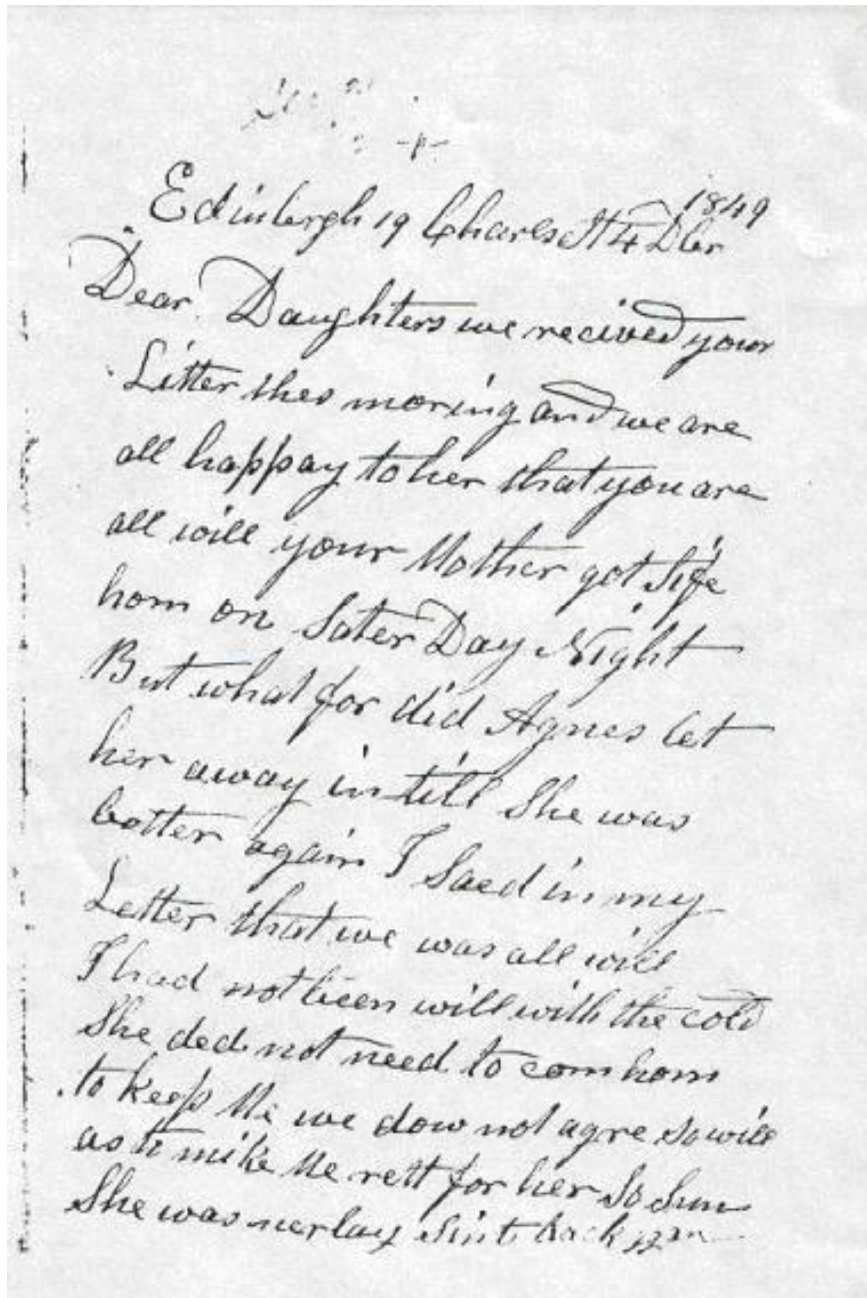 1849
Edinbergh 19 Charls St 4 Dbr
Dear Daughters we recived your
Litter thes moring and we are
all happay to her that you are
all will your Mother got Sife
hom on Sater Day Night
But what for did Agnes let
her away in till She was
better again I Saed in my
Letter that we was all will
I had not been will with the cold
She ded not need to com hom
to keep Me we dow not agre so will
as to mike Me rett for her So Sun
She was nerlay Sint back